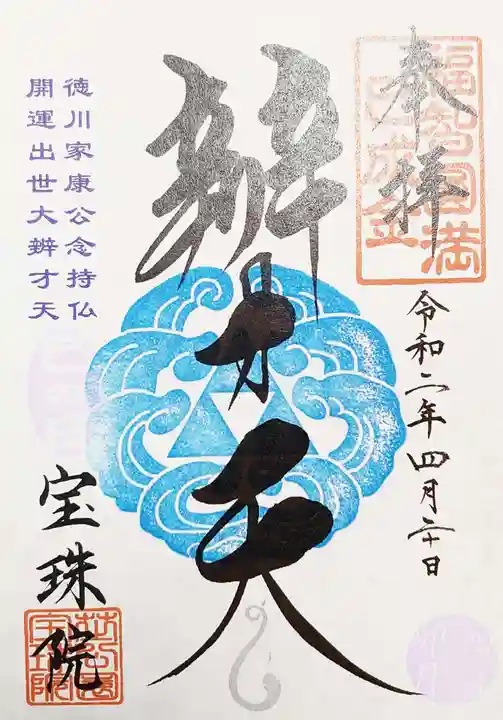 奉拝
福智円満
令和二年四月二十日
辨才天
徳川家康公念持仏
開運出世大辨才天
宝珠院